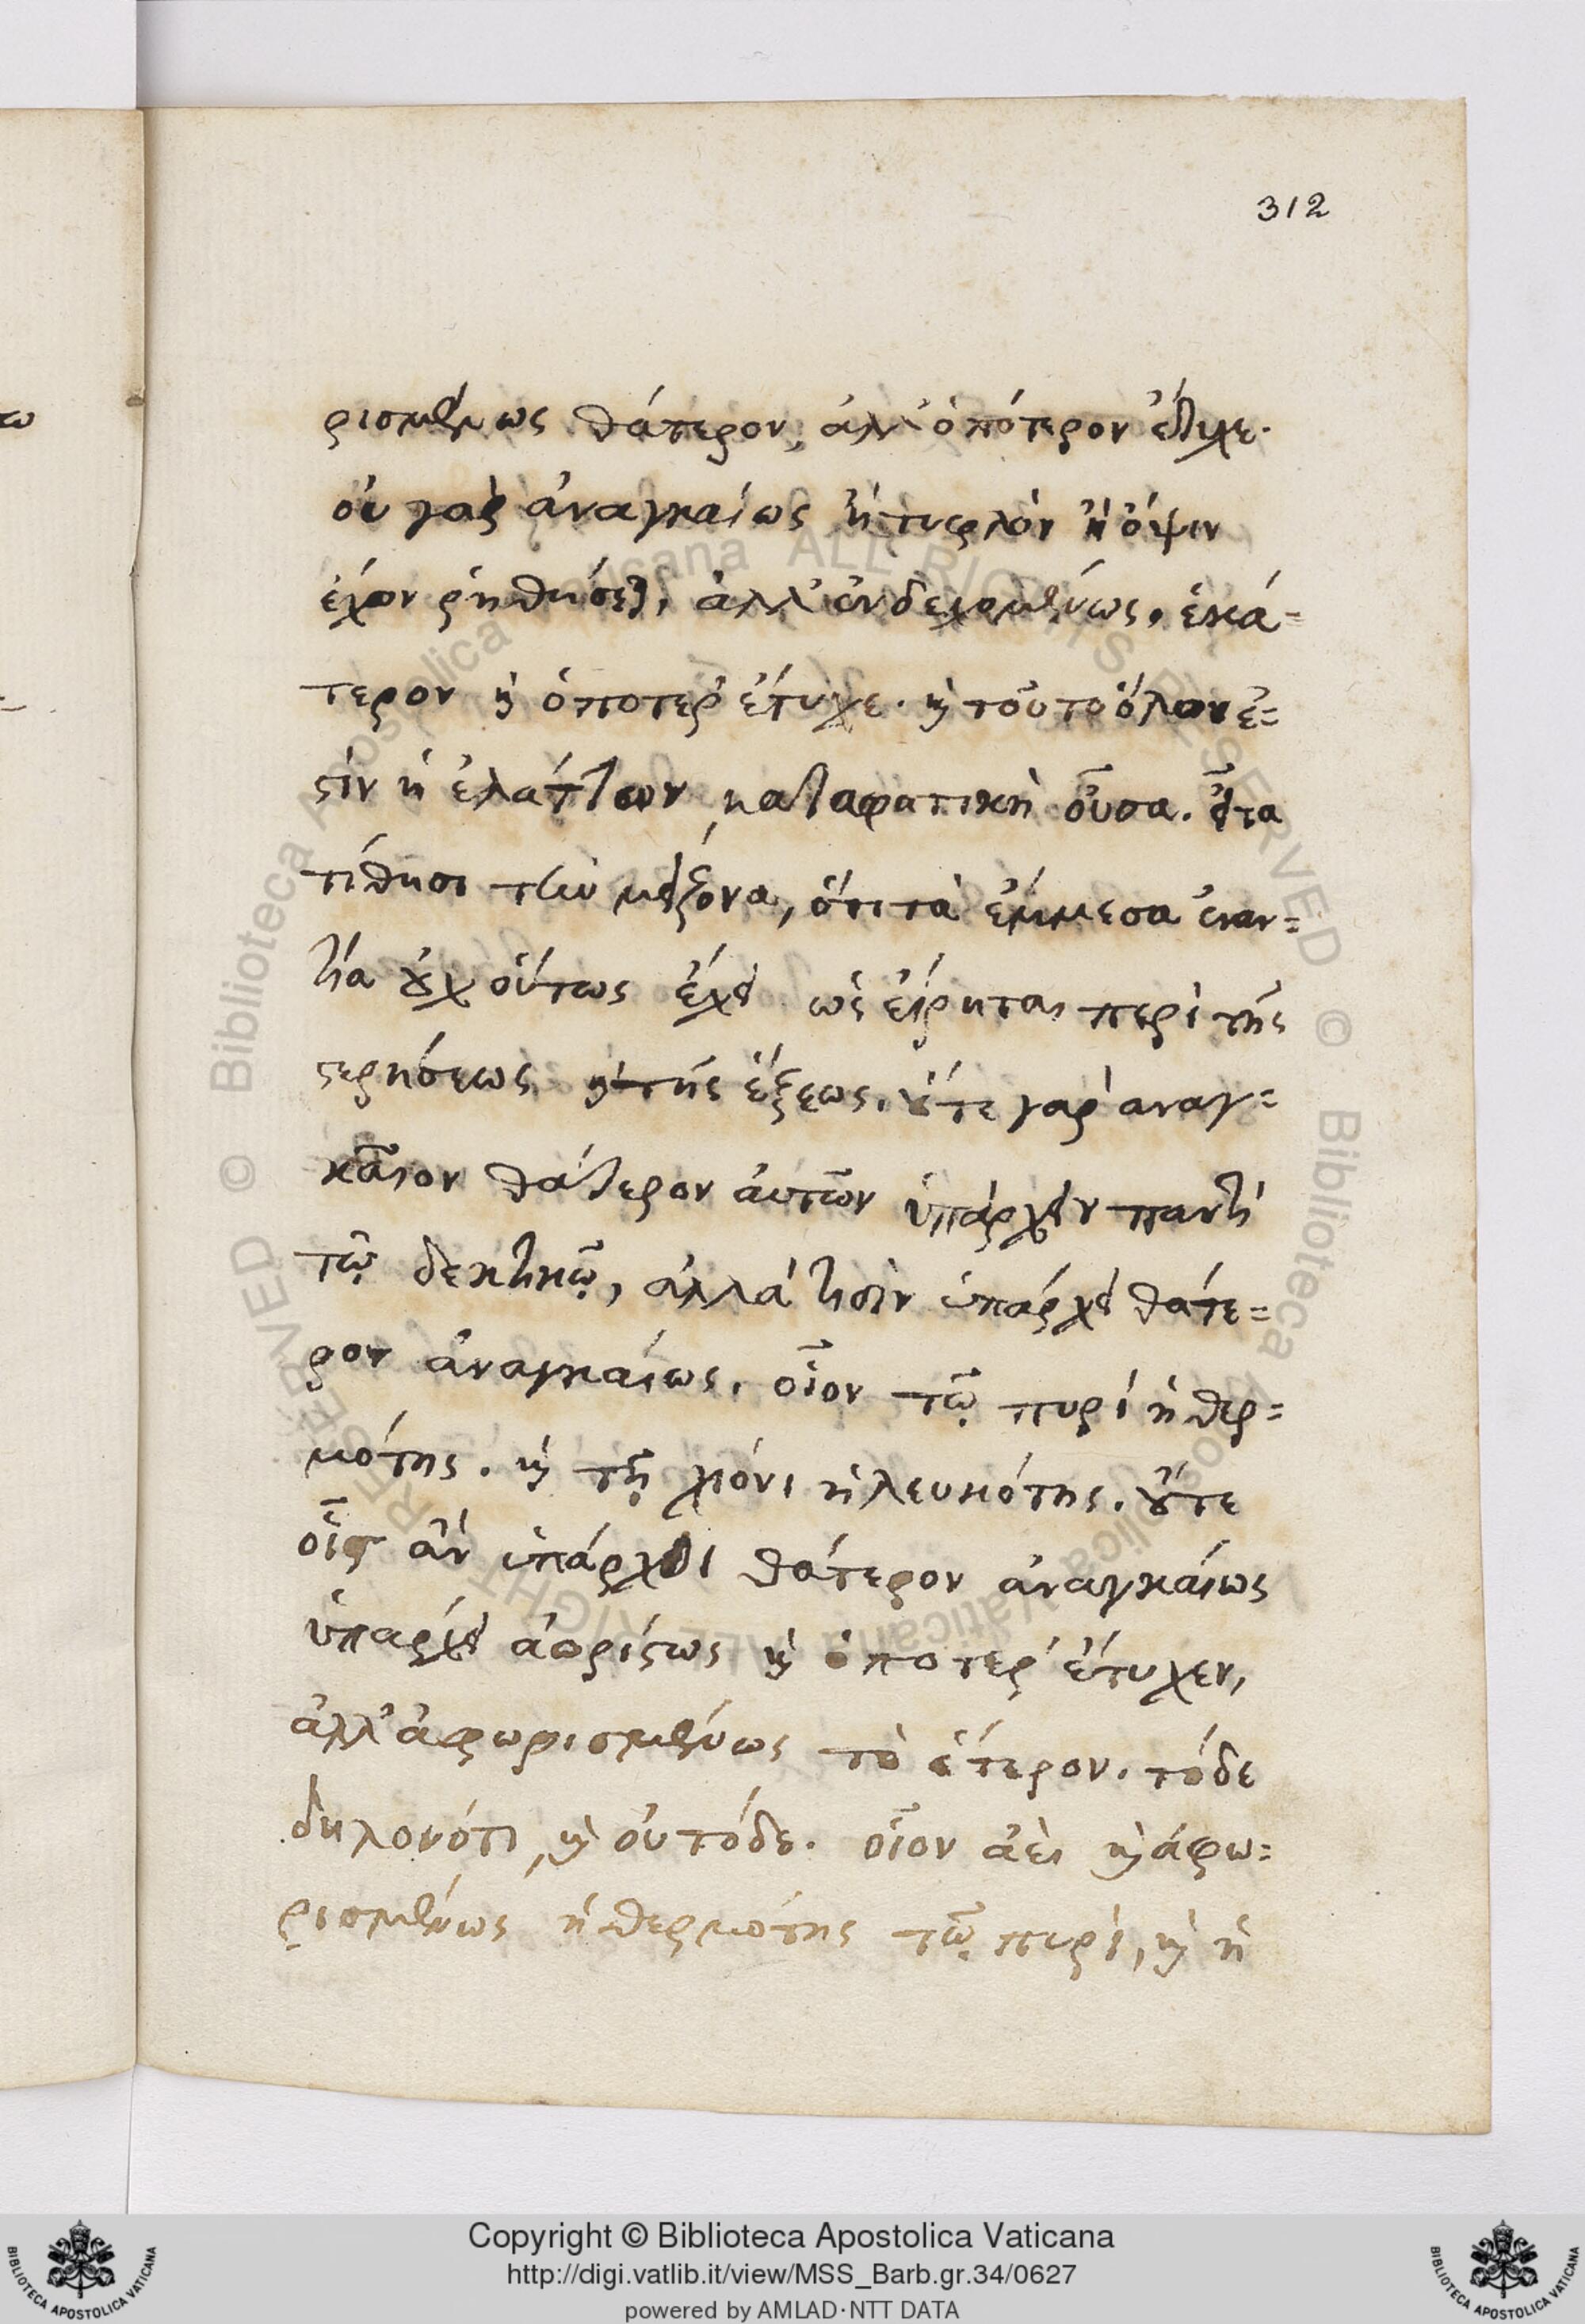 312
ρισμένως θάτερον, ἀλλ' ὁπότερον ἔτυχε.
οὐ γὰρ ἀναγκαίως ἢ τυφλὸν ἢ ὄψιν
ἔχον ῥηθήσεται, ἀλλ' ἐνδεχομένως, ἑκά=
τερον καὶ ὁποτερ' ἔτυχε. καὶ τοῦτο ὅλον ἐ=
στὶν ἡ ἐλάττων, καταφατικὴ οὖσα. εἶτα
τίθησι τὴν μείζονα, ὅτι τὰ ἔμμεσα ἐναν=
τία οὐχ οὕτως ἔχει ὡς εἴρηται περὶ τῆς
στερήσεως καὶ τῆς ἕξεως. οὔτε γὰρ αναγ=
καῖον θάτερον αὐτῶν ὑπάρχειν παντὶ
τῷ δεκτικῷ, ἀλλὰ τισὶν ὑπάρχει θάτε=
ρον ἀναγκαίως. οἷον τῷ πυρὶ ἡ θερ=
μότης. καὶ τῇ χιόνι ἡ λευκότης. οὔτε
οἷς ἂν ὑπάρχοι θάτερον ἀναγκαίως
ὑπαρχει ἀορίστως καὶ ὁποτερ' ἔτυχεν,
ἀλλ' ἀφωρισμένως τὸ ἕτερον. τόδε
δηλονότι, καὶ οὐ τόδε. οἷον ἀεὶ καὶ ἀφω=
ρισμένως ἡ θερμότης τῷ πυρὶ, καὶ ἡ
Copyright © Biblioteca Apostolica Vaticana
http://digi.vatlib.it/view/MSS_Barb.gr.34/0627
powered by AMLAD·NTT DATA